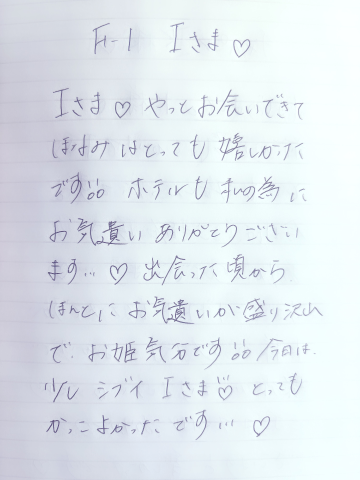 F-1 Iさま♡
Iさま♡ やっとお会いできて
ほなみはとっても 嬉しかった
です ホテルも 私の為に
お気遣い ありがとうござい
ます…♡ 出会った頃から
ほんとに お気遣いが 盛り沢山
で、お姫気分です 今日は、
少し シブイ Iさま♡ とっても
かっこよかったです…♡